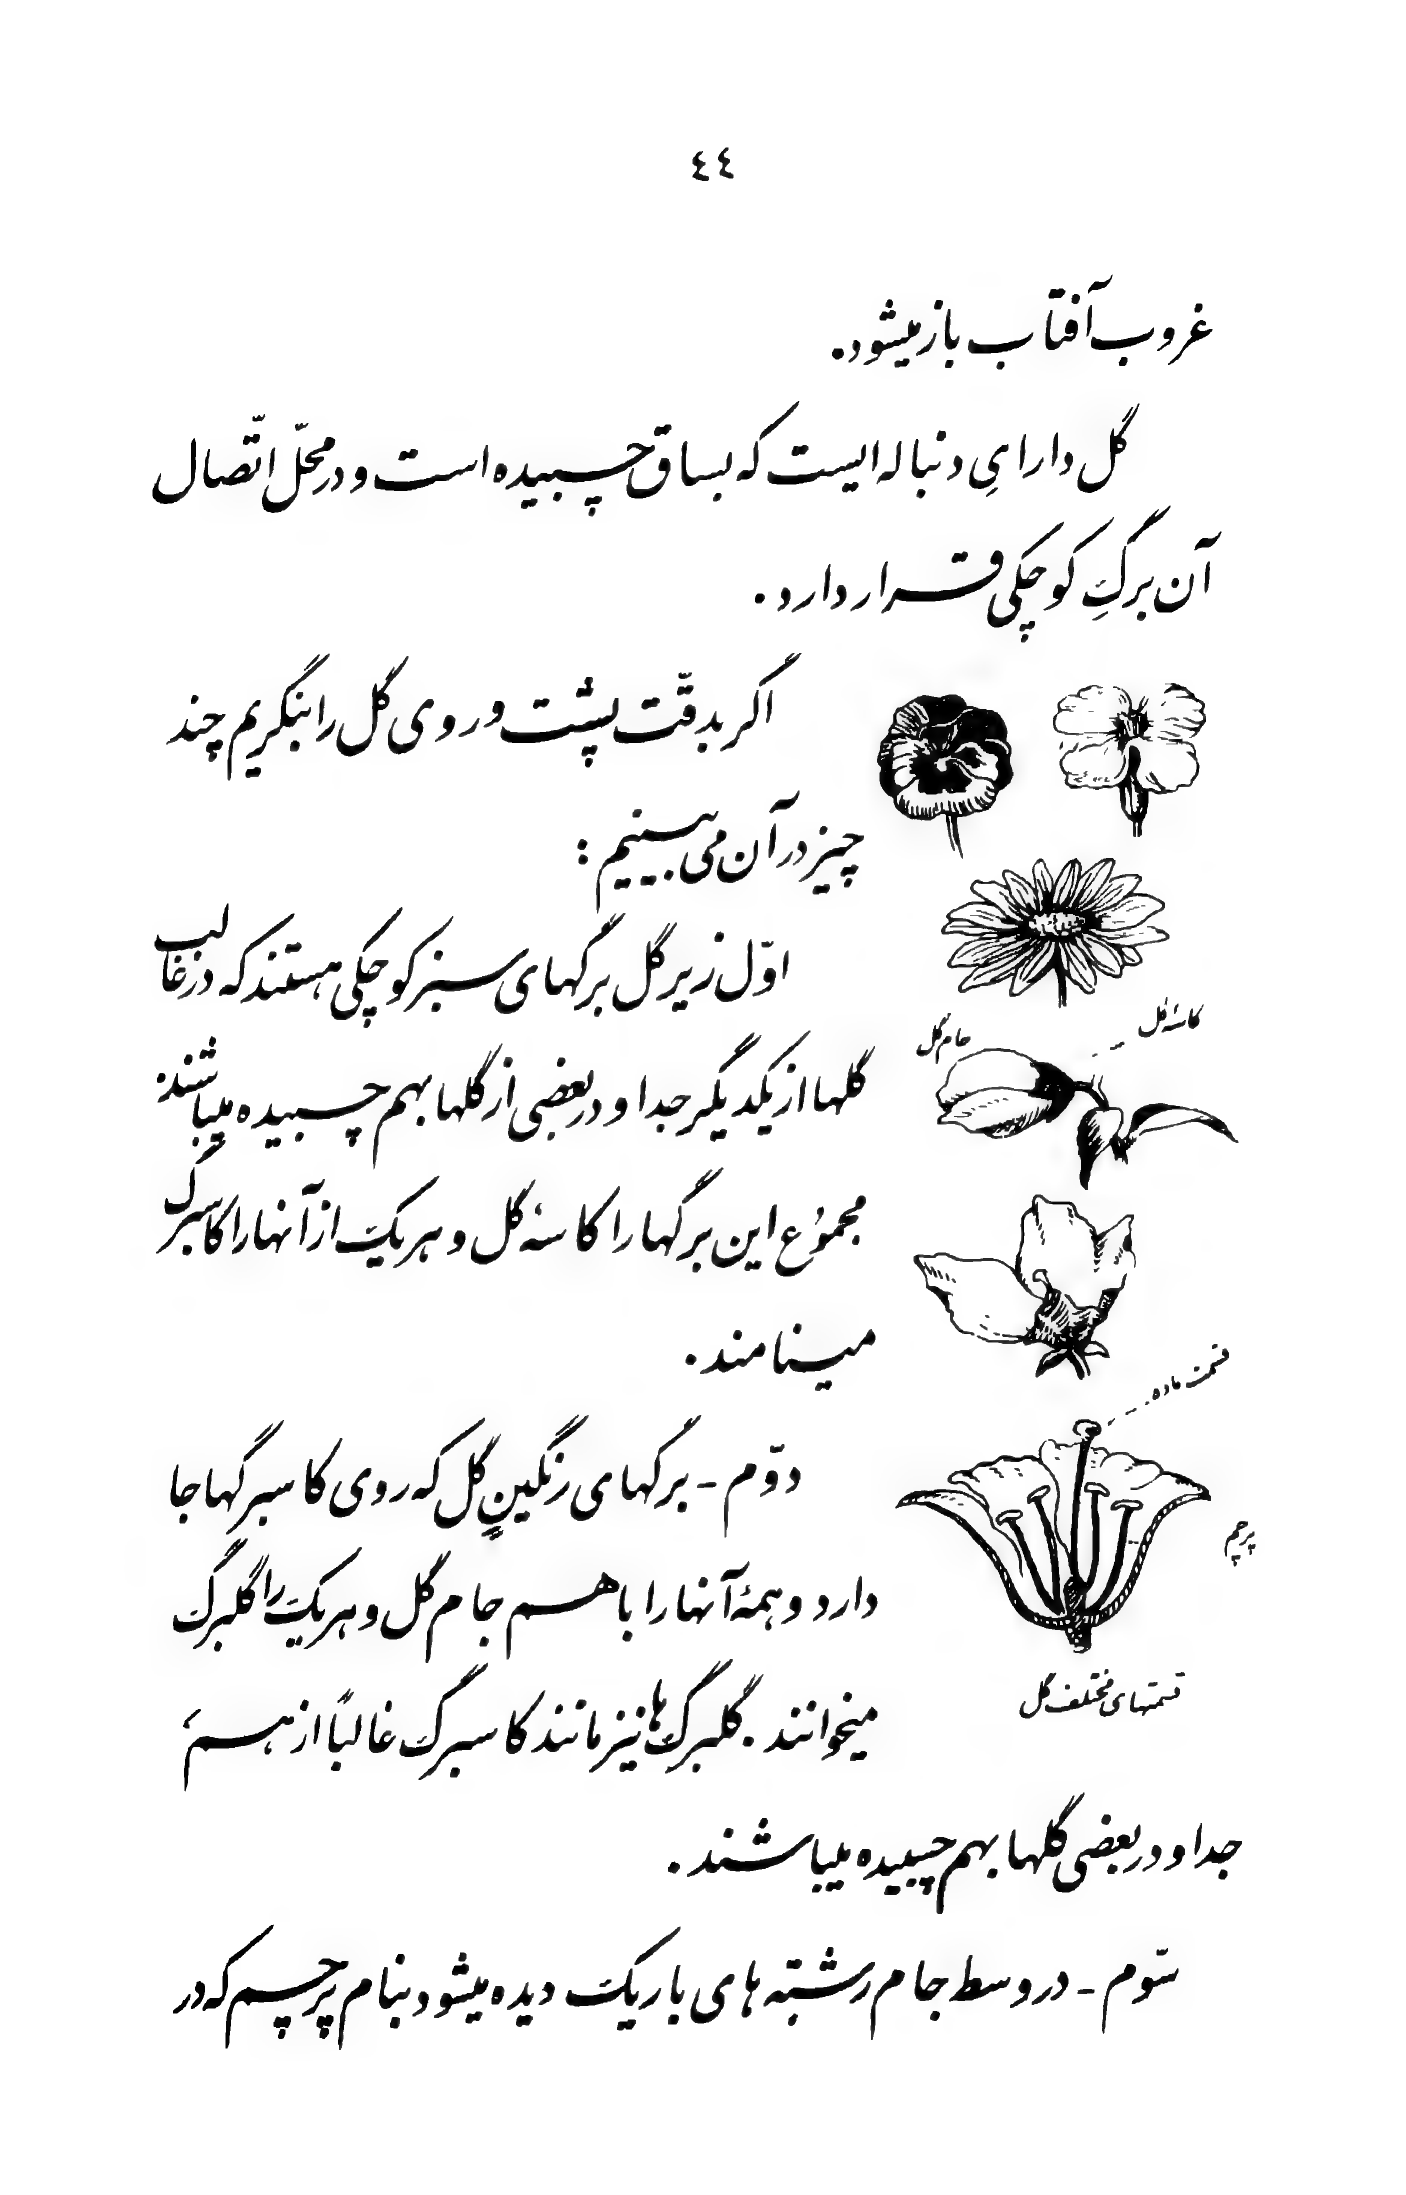 ٤٤
غروب آفتاب باز میشود.
گل دارایِ دنباله ایست که بساق چسبیده است و در محلّ اتّصال
آن برگِ کوچکی قرار دارد.
اگر بدقّت پشت و روی گل را بنگریم چند
چیز در آن می بینیم :
اوّل زیر گل برگهای سبز کوچکی هستند که در غالب
گلها از یکدیگر جدا و در بعضی از گلها بهم چسبیده میباشند.
مجموُع این برگها را کاسهٔ گل و هر یک از آنها را کاسبرگ
مینامند.
دوّم - برگهای رنگینِ گل که روی کاسبرگها جا
دارد و همهٔ آنها را با هم جام گل و هر یک را گلبرگ
میخوانند. گلبرگ ها نیز مانند کاسبرگ غالباً از هم
جدا و در بعضی گلها بهم چسبیده میباشند.
سّوم - در وسط جام رشته های باریک دیده میشود بنام پرچم که در
کاسهٔ گل
جام گل
قسمت ماده
پرچم
قسمتهای مختلف گل